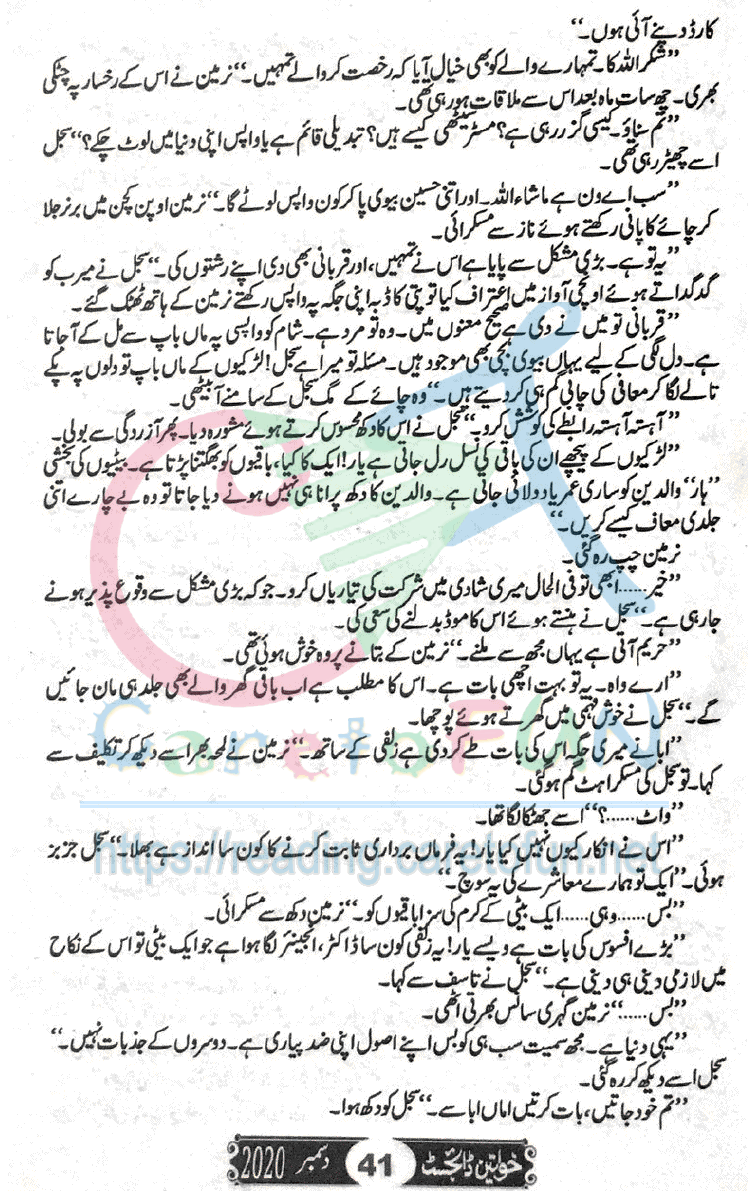 کارڈ دینے آئی ہوں۔‘‘
’’شکر اللہ کا۔ تمہارے والے کو بھی خیال آیا کہ رخصت کروالے تمہیں۔‘‘ نرمین نے اس کے رخسار پہ چٹکی
بھری۔ چھ سات ماہ بعد اس سے ملاقات ہو رہی تھی۔
’’تم سناؤ۔ کیسی گزر رہی ہے؟ مسٹر سیٹھی کیسے ہیں؟ تبدیلی قائم ہے یا واپس اپنی دنیا میں لوٹ چکے؟‘‘ سجل
اسے چھیڑ رہی تھی۔
’’سب اے ون ہے ماشاء اللہ۔ اور اتنی حسین بیوی پا کر کون واپس لوٹے گا۔‘‘ نرمین اوپن کچن میں برنر جلا
کر چائے کا پانی رکھتے ہوئے ناز سے مسکرائی۔
’’یہ تو ہے۔ بڑی مشکل سے پایا ہے اس نے تمہیں، اور قربانی بھی دی اپنے رشتوں کی۔‘‘ سجل نے میرب کو
گدگداتے ہوئے اونچی آواز میں اعتراف کیا تو پتی کا ڈبہ اپنی جگہ پہ واپس رکھتے نرمین کے ہاتھ ٹھٹک گئے۔
’’قربانی تو میں نے دی ہے صحیح معنوں میں۔ وہ تو مرد ہے۔ شام کو واپسی پہ ماں باپ سے مل کے آجاتا
ہے۔ دل لگی کے لیے یہاں بیوی بچی بھی موجود ہیں۔ مسئلہ تو میرا ہے سجل! لڑکیوں کے ماں باپ تو دلوں پہ پکے
تالے لگا کر معافی کی چابی گم ہی کردیتے ہیں۔‘‘ وہ چائے کے مگ سجل کے سامنے آ بیٹھی۔
’’آہستہ آہستہ رابطے کی کوشش کرو۔‘‘ سجل نے اس کا دکھ محسوس کرتے ہوئے مشورہ دیا۔ پھر آزردگی سے بولی۔
’’لڑکیوں کے پیچھے ان کی باقی کی نسل رل جاتی ہے یار! ایک کا کیا، باقیوں کو بھگتنا پڑتا ہے۔ بیٹیوں کی بخشی
’’ہار‘‘ والدین کو ساری عمر یاد دلائی جاتی ہے۔ والدین کا دکھ پرانا ہی نہیں ہونے دیا جاتا تو وہ بے چارے اتنی
جلدی معاف کیسے کریں۔‘‘
نرمین چپ رہ گئی۔
’’خیر…… ابھی تو فی الحال میری شادی میں شرکت کی تیاریاں کرو۔ جو کہ بڑی مشکل سے وقوع پذیر ہونے
جارہی ہے۔‘‘ سجل نے ہنستے ہوئے اس کا موڈ بدلنے کی سعی کی۔
’’حریم آئی ہے یہاں مجھ سے ملنے۔‘‘ نرمین کے بتانے پر وہ خوش ہوئی تھی۔
’’ارے واہ۔ یہ تو بہت اچھی بات ہے۔ اس کا مطلب ہے اب باقی گھر والے بھی جلد ہی مان جائیں
گے۔‘‘ سجل نے خوش فہمی میں گھرتے ہوئے پوچھا۔
’’ابا نے میری جگہ اس کی بات طے کردی ہے زلفی کے ساتھ۔‘‘ نرمین نے لمحہ بھر اسے دیکھ کر تکلیف سے
کہا۔ تو سجل کی مسکراہٹ گم ہوگئی۔
’’واٹ……؟‘‘ اسے جھٹکا لگا تھا۔
’’اس نے انکار کیوں نہیں کیا یار! یہ فرماں برداری ثابت کرنے کا کون سا انداز ہے بھلا۔‘‘ سجل جزبز
ہوئی۔ ’’ایک تو ہمارے معاشرے کی یہ سوچ۔‘‘
’’بس…… وہی…… ایک بیٹی کے کرم کی سزا باقیوں کو۔‘‘ نرمین دکھ سے مسکرائی۔
’’بڑے افسوس کی بات ہے ویسے یار! یہ زلفی کون سا ڈاکٹر، انجینئر لگا ہوا ہے جو ایک بیٹی تو اس کے نکاح
میں لازمی دینی ہی دینی ہے۔‘‘ سجل نے تاسف سے کہا۔
’’بس……‘‘ نرمین گہری سانس بھرتی اٹھی۔
’’یہی دنیا ہے۔ مجھ سمیت سب ہی کو بس اپنے اصول اپنی ضد پیاری ہے۔ دوسروں کے جذبات نہیں۔‘‘
سجل اسے دیکھ کر رہ گئی۔
’’تم خود جاتیں، بات کرتیں اماں ابا سے۔‘‘ سجل کو دکھ ہوا۔
CaretoFUN
https://reading.caretofun.net
خواتین ڈائجسٹ 41 دسمبر 2020